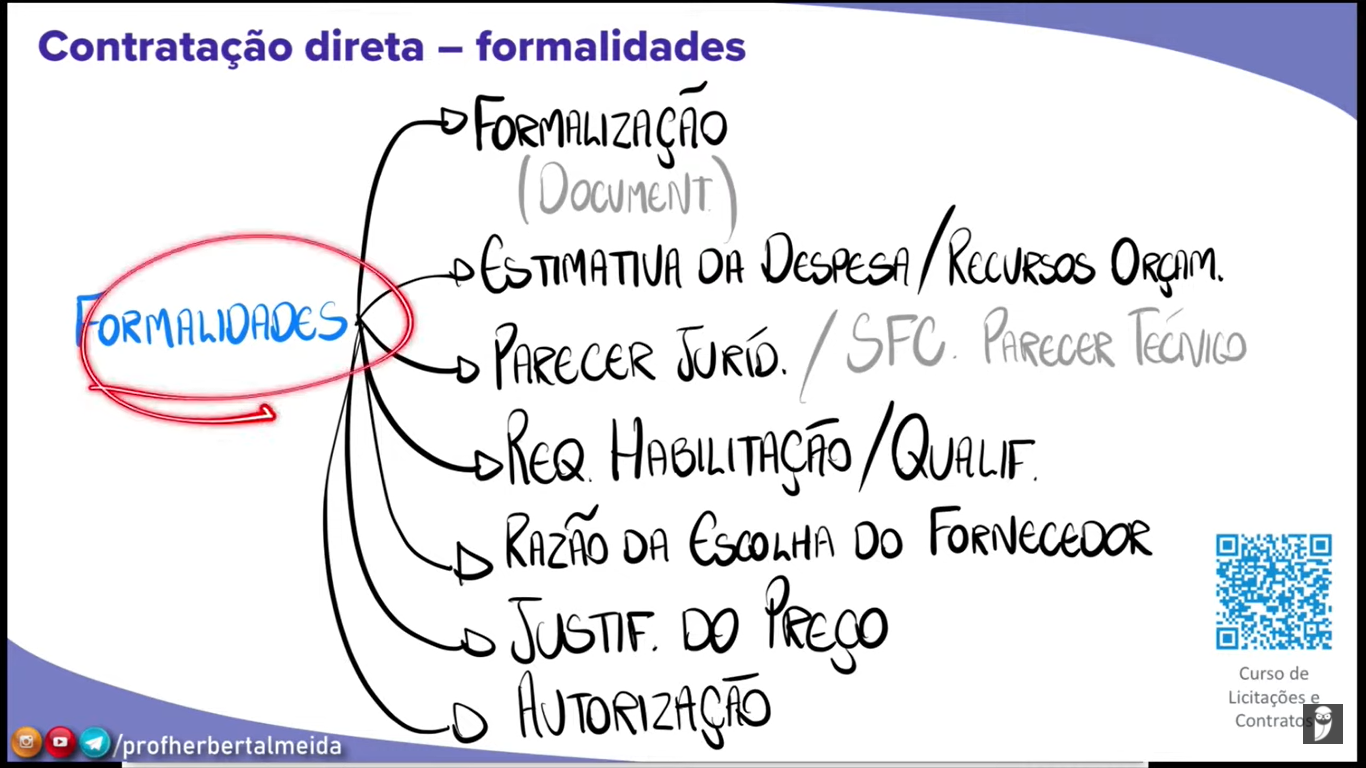 Contratação direta – formalidades
FORMALIZAÇÃO
(DOCUMENT.)
ESTIMATIVA DA DESPESA/RECURSOS ORÇAM.
FORMALIDADES
PARECER JURÍD. / SFC. PARECER TÉCNICO
REQ. HABILITAÇÃO/QUALIF.
RAZÃO DA ESCOLHA DO FORNECEDOR
JUSTIF. DO PREÇO
AUTORIZAÇÃO
Curso de
Licitações e
Contratos
/profherbertalmeida